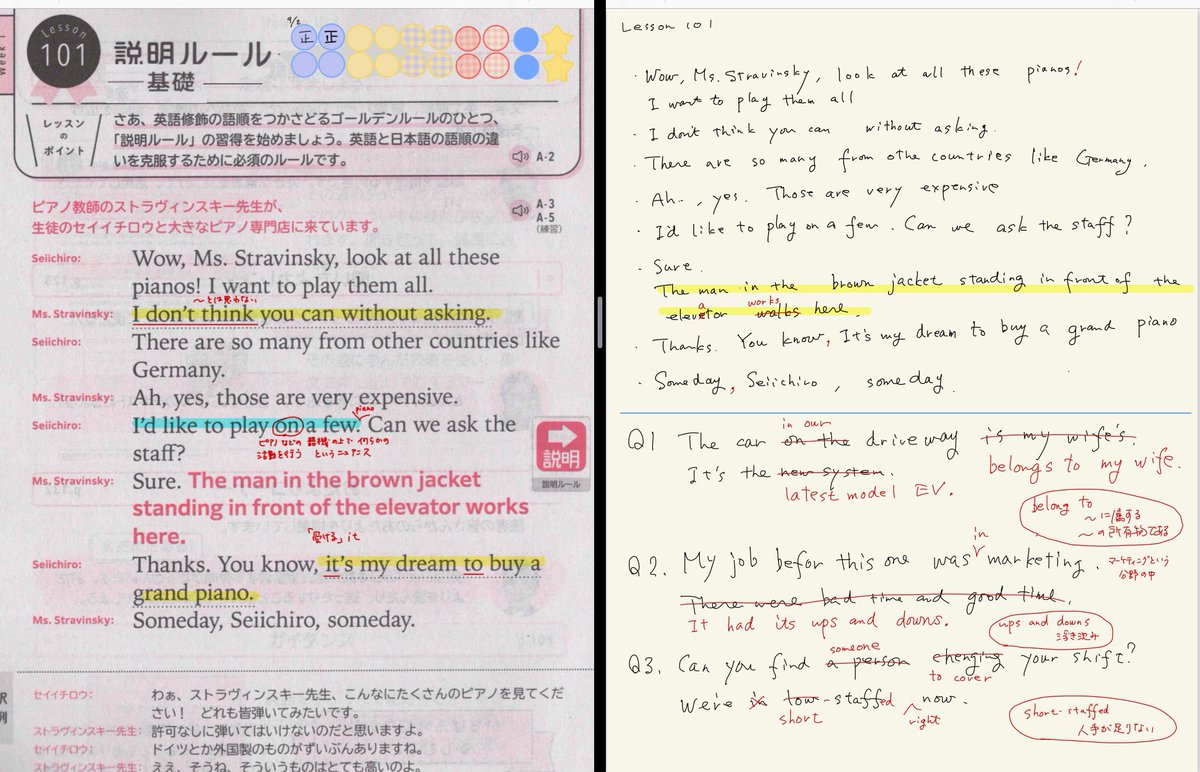 Week
Lesson
101
9/2
正 正
説明ルール
基礎
レッスン
の
ポイント
さあ、英語修飾の語順をつかさどるゴールデンルールのひとつ、
「説明ルール」の習得を始めましょう。英語と日本語の語順の違
いを克服するために必須のルールです。
A-2
ピアノ教師のストラヴィンスキー先生が、
生徒のセイイチロウと大きなピアノ専門店に来ています。
A-3
A-5
(練習)
Seiichiro: Wow, Ms. Stravinsky, look at all these
pianos! I want to play them all.
〜とは思わない
Ms. Stravinsky: I don't think you can without asking.
Seiichiro: There are so many from other countries like
Germany.
Ms. Stravinsky: Ah, yes, those are very expensive.
piano
Seiichiro: I'd like to play on a few. Can we ask the
staff?
ピアノなどの楽器の上で何らかの
活動を行う というニュアンス
説明
説明ルール
Ms. Stravinsky: Sure. The man in the brown jacket
standing in front of the elevator works
here.
「受ける」it
Seiichiro: Thanks. You know, it's my dream to buy a
grand piano.
Ms. Stravinsky: Someday, Seiichiro, someday.
訳
例
セイイチロウ: わぁ、ストラヴィンスキー先生、こんなにたくさんのピアノを見てくだ
さい! どれも皆弾いてみたいです。
ストラヴィンスキー先生: 許可なしに弾いてはいけないのだと思いますよ。
セイイチロウ: ドイツとか外国製のものがずいぶんありますね。
ストラヴィンスキー先生: ええ、そうね、そういうものはとても高いのよ。
Lesson 101
・Wow, Ms. Stravinsky, look at all these pianos!
I want to play them all
・I dont think you can without asking.
・There are so many from othe countries like Germany.
・Ah, yes. Those are very expensive
・I'd like to play on a few. Can we ask the staff?
・Sure.
The man in the brown jacket standing in front of the
a works
elevetor walks here.
・Thanks. You know, It's my dream to buy a grand piano
・Someday, Seiichiro, someday.
in our
Q1 The car on the driveway is my wife's.
belongs to my wife.
It's the new system.
latest model EV.
belong to
〜に属する
〜の所有物である
in
Q2. My job befor this one was marketing.
マーケティングという
分野の中
There were bad time and good time.
It had its ups and downs.
ups and downs
浮き沈み
someone
Q3. Can you find a person chenging your shift?
to cover
We're is tow-staffed now.
short right
short-staffed
人手が足りない